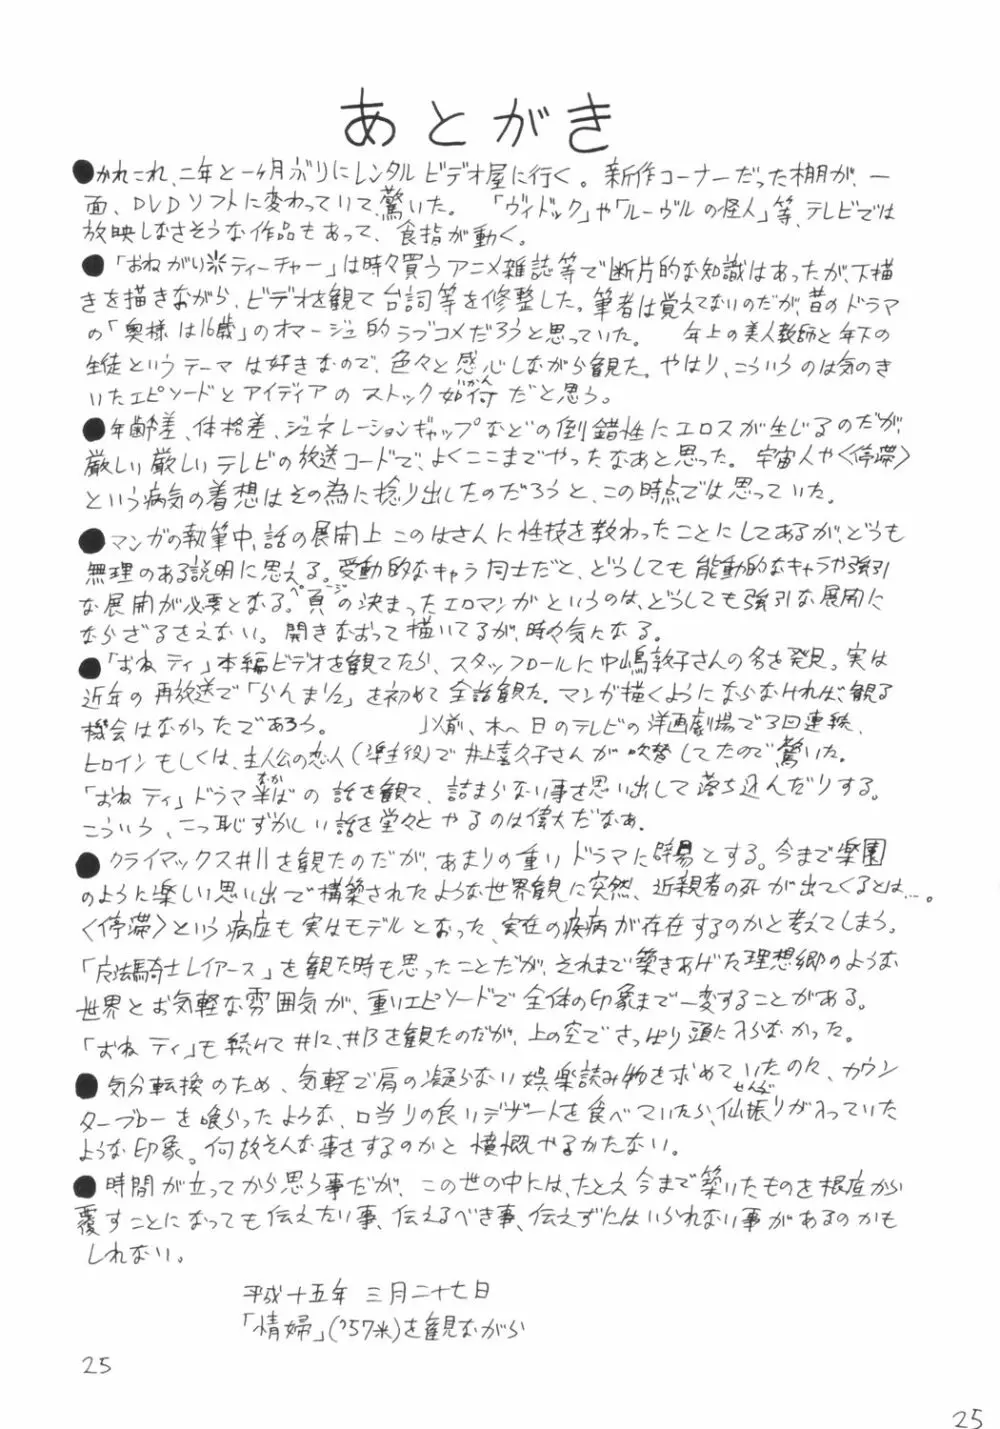 あとがき
●かれこれ、二年と一ヶ月ぶりにレンタルビデオ屋に行く。新作コーナーだった棚が、一
面、DVDソフトに変わっていて、驚いた。「ヴィドック」や「ルーヴルの怪人」等、テレビでは
放映しなさそうな作品もあって、食指が動く。
●「おねがい＊ティーチャー」は時々買うアニメ雑誌等で断片的な知識はあったが、下描
きを描きながら、ビデオを観て台詞等を修整した。筆者は覚えてないのだが、昔のドラマ
の「奥様は16歳」のオマージュ的ラブコメだろうと思っていた。 年上の美人教師と年下の
生徒というテーマは好きなので、色々と感心しながら観た。やはり、こういうのは気のき
いたエピソードとアイディアのストック如何(いかん)だと思う。
●年齢差、体格差、ジェネレーションギャップなどの倒錯性にエロスが生じるのだが、
厳しい厳しいテレビの放送コードで、よくここまでやったなあと思った。宇宙人や〈停滞〉
という病気の着想はその為に捻り出したのだろうと、この時点では思っていた。
●マンガの執筆中、話の展開上このはさんに性技を教わったことにしてあるが、どうも
無理のある説明に思える。受動的なキャラ同士だと、どうしても能動的なキャラや強引
な展開が必要となる。頁(ページ)の決まったエロマンガというのは、どうしても強引な展開に
ならざるをえない。開きなおって描いてるが、時々気になる。
●「おねティ」本編ビデオを観てたら、スタッフロールに中嶋敦子さんの名を発見。実は
近年の再放送で「らんま½」を初めて全話観た。マンガ描くようにならなければ、観る
機会はなかったであろう。 以前、木〜日のテレビの洋画劇場で3回連続、
ヒロインもしくは、主人公の恋人(準主役)で井上喜久子さんが吹替してたので驚いた。
「おねティ」ドラマ半(なか)ばの話を観て、詰まらない事を思い出して落ち込んだりする。
こういう、こっ恥ずかしい話を堂々とやるのは偉大だなぁ。
●クライマックス#11を観たのだが、あまりの重いドラマに辟易とする。今まで楽園
のように楽しい思い出で構築されたような世界観に突然、近親者の死が出てくるとは…。
〈停滞〉という病症も実はモデルとなった、実在の疾病が存在するのかと考えてしまう。
「魔法騎士レイアース」を観た時も思ったことだが、それまで築きあげた理想郷のような
世界とお気軽な雰囲気が、重いエピソードで全体の印象まで一変することがある。
「おねティ」も続けて#12、#13を観たのだが、上の空でさっぱり頭に入らなかった。
●気分転換のため、気軽で肩の凝らない娯楽読み物を求めていたのに、カウン
ターブローを喰らったような、口当りの良いデザートを食べていたら、仙振(せんぶ)りが入っていた
ような印象。何故そんな事をするのかと憤慨やるかたない。
●時間が立ってから思う事だが、この世の中には、たとえ今まで築いたものを根底から
覆すことになっても伝えたい事、伝えるべき事、伝えずにはいられない事があるのかも
しれない。
平成十五年 三月二十七日
「情婦」('57米)を観ながら
25
25